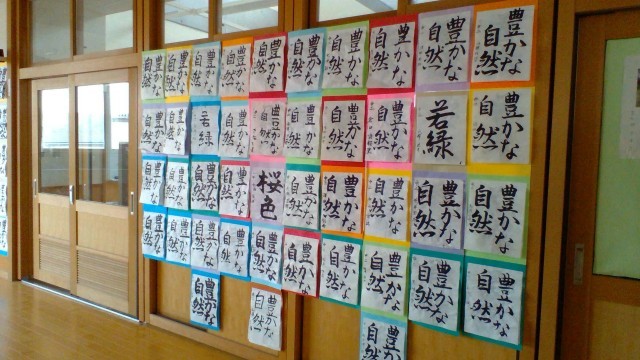 豊かな
自然
豊かな
自然
豊かな
自然
豊かな
自然
豊かな
自然
豊かな
自然
豊かな
自然
豊かな
自然
豊かな
自然
豊かな
自然
豊かな
自然
豊かな
自然
若緑
豊かな
自然
豊かな
自然
豊かな
自然
豊かな
自然
豊かな
自然
若緑
豊かな
自然
豊かな
自然
豊かな
自然
豊かな
自然
豊かな
自然
桜色
豊かな
自然
豊かな
自然
豊かな
自然
豊かな
自然
豊かな
自然
豊かな
自然
豊かな
自然
豊かな
自然
豊かな
自然
豊かな
自然
豊かな
自然
豊かな
自然
豊かな
自然
豊かな
自然
豊かな
自然
豊かな
自然
豊かな
自然
豊かな
自然